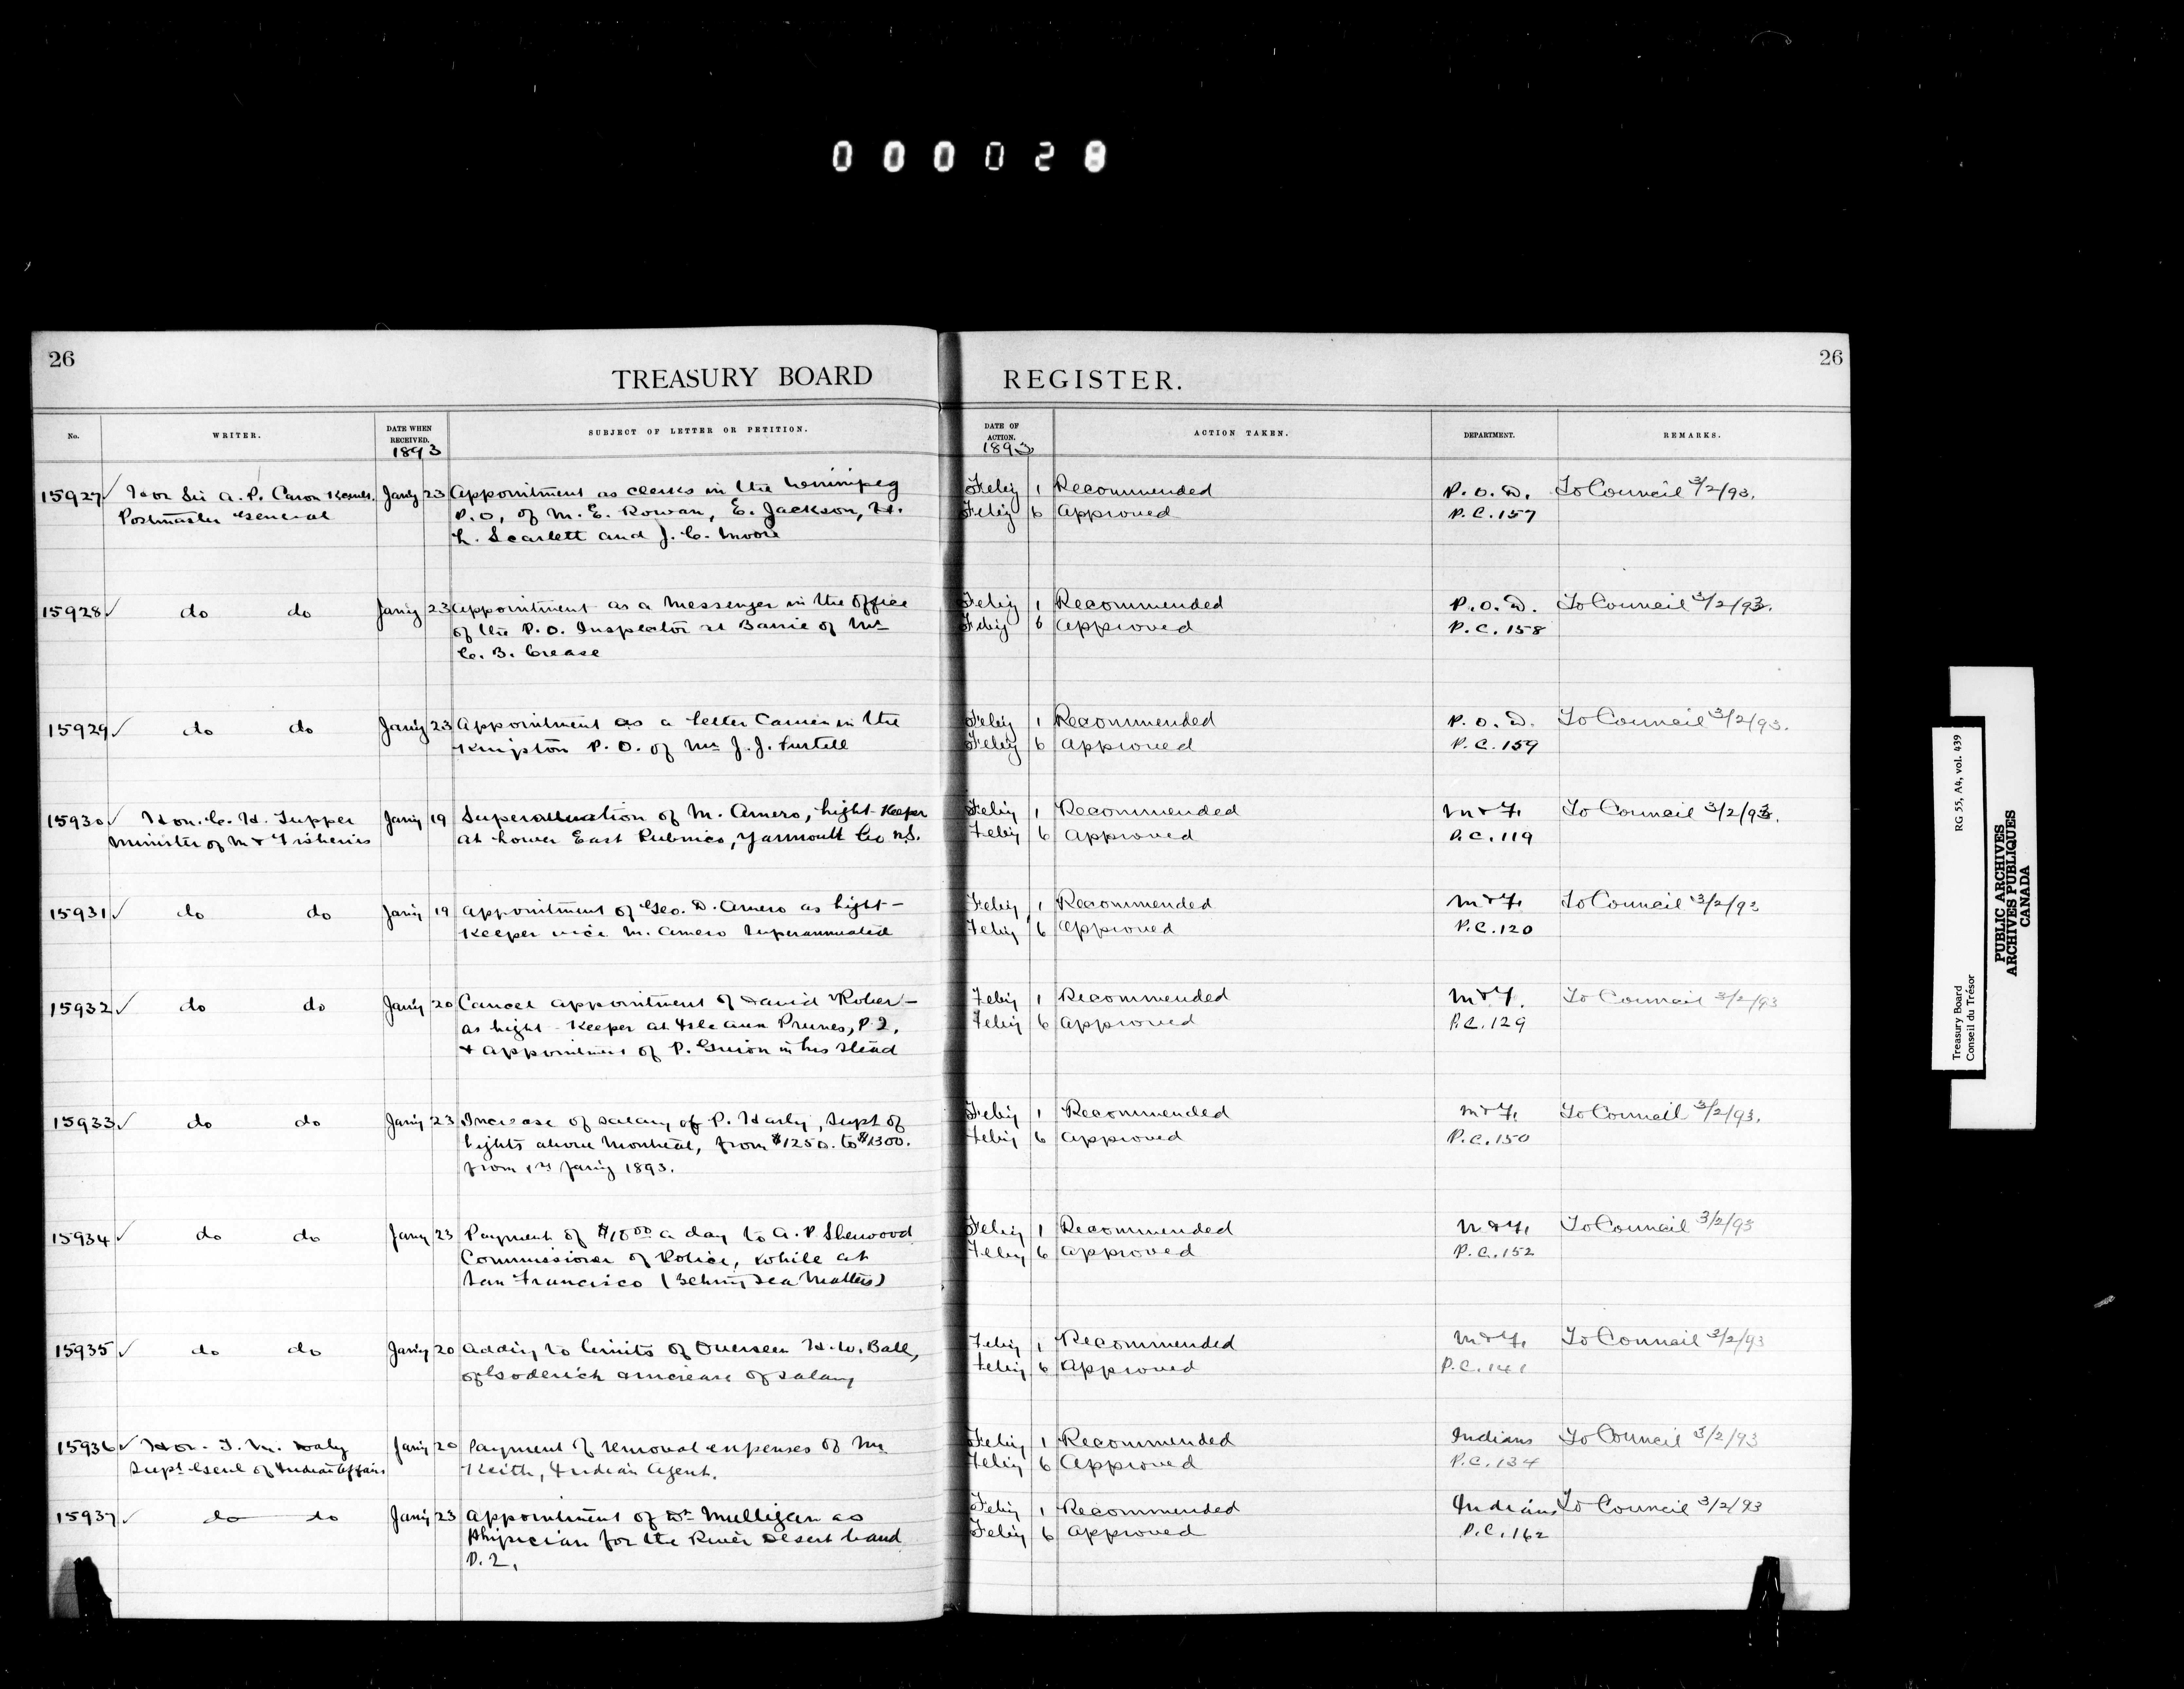 000028
26
26
TREASURY BOARD REGISTER.
No. WRITER. DATE WHEN RECEIVED. SUBJECT OF LETTER OR PETITION. DATE OF ACTION. ACTION TAKEN. DEPARTMENT. REMARKS.
1893 1893
15927 ✓ Hon Sir A. P. Caron Jany 23 Appointment as clerks in the Winnipeg Feby 1 Recommended P. O. D. To Council 3/2/93.
Postmaster General P. O, of M. E. Rowan, E. Jackson, H. Feby 6 Approved P. C. 157
L. Scarlett and J. C. Moore
15928 ✓ do do Jany 23 Appointment as a Messenger in the office Feby 1 Recommended P. O. D. To Council 3/2/93.
of the P. O. Inspector at Barrie of Mr Feby 6 Approved P. C. 158
C. B. Crease
15929 ✓ do do Jany 23 Appointment as a Letter Carrier in the Feby 1 Recommended P. O. D. To Council 3/2/93.
Kingston P. O. of Mr J. J. Furtell Feby 6 Approved P. C. 159
15930 ✓ Hon. C. H. Tupper Jany 19 Superannuation of M. Amero, Light-Keeper Feby 1 Recommended M & F. To Council 3/2/93.
Minister of M & Fisheries at Lower East Pubnico, Yarmouth Co N.S. Feby 6 Approved P.C. 119
15931 ✓ do do Jany 19 Appointment of Geo. D. Amero as Light- Feby 1 Recommended M & F. To Council 3/2/93
Keeper vice M. Amero superannuated Feby 6 Approved P.C. 120
15932 ✓ do do Jany 20 Cancel appointment of David Rober- Feby 1 Recommended M & F. To Council 3/2/93
as Light-Keeper at Isle aux Prunes, P.Q. Feby 6 Approved P.C. 129
& appointment of P. Guion in his stead
15933 ✓ do do Jany 23 Increase of salary of P. Harty, Supt of Feby 1 Recommended M & F. To Council 3/2/93.
Lights above Montreal, from $1250. to $1300. Feby 6 Approved P.C. 150
from 1st Jany 1893.
15934 ✓ do do Jany 23 Payment of $10 00 a day to A. P. Sherwood Feby 1 Recommended M & F. To Council 3/2/93
Commissioner of Police, while at Feby 6 Approved P.C. 152
San Francisco (Behring Sea Matters)
15935 ✓ do do Jany 20 Adding to limits of Overseer H. W. Ball, Feby 1 Recommended M & F. To Council 3/2/93
of Goderich & increase of salary Feby 6 Approved P.C. 141
15936 ✓ Hon. T. M. Daly Jany 20 Payment of removal expenses of Mr Feby 1 Recommended Indians To Council 3/2/93
Supt Genl of Indian Affairs Keith, Indian Agent. Feby 6 Approved P.C. 134
15937 ✓ do do Jany 23 Appointment of Dr Mulligan as Feby 1 Recommended Indians To Council 3/2/93
Physician for the River Desert band Feby 6 Approved P.C. 162
P.Q.
Treasury Board RG 55, A4, vol. 439
Conseil du Trésor
PUBLIC ARCHIVES
ARCHIVES PUBLIQUES
CANADA